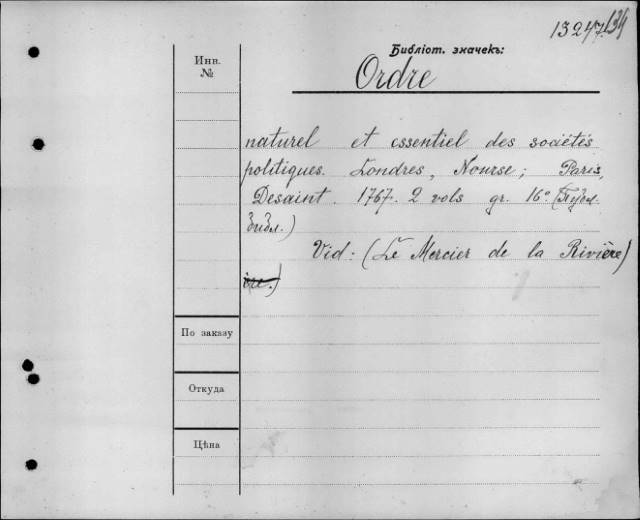 13247.
Библіот. значекъ:
Инв.
№
Ordre
naturel et essentiel des sociétés
politiques. Londres, Nourse; Paris,
Desaint. 1767. 2 vols gr. 16º. (Публ.
библ.)
Vid: (Le Mercier de la Rivière)
По заказу
Откуда
Цѣна